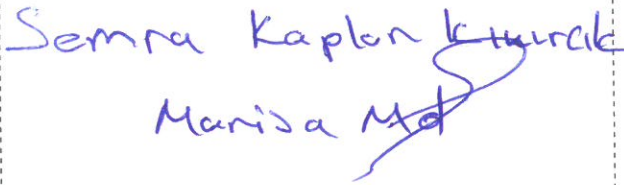 Semra Kaplan Kıvırcık
Manisa Md